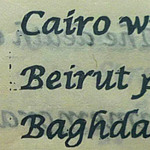 Cairo w
Beirut p
Baghda